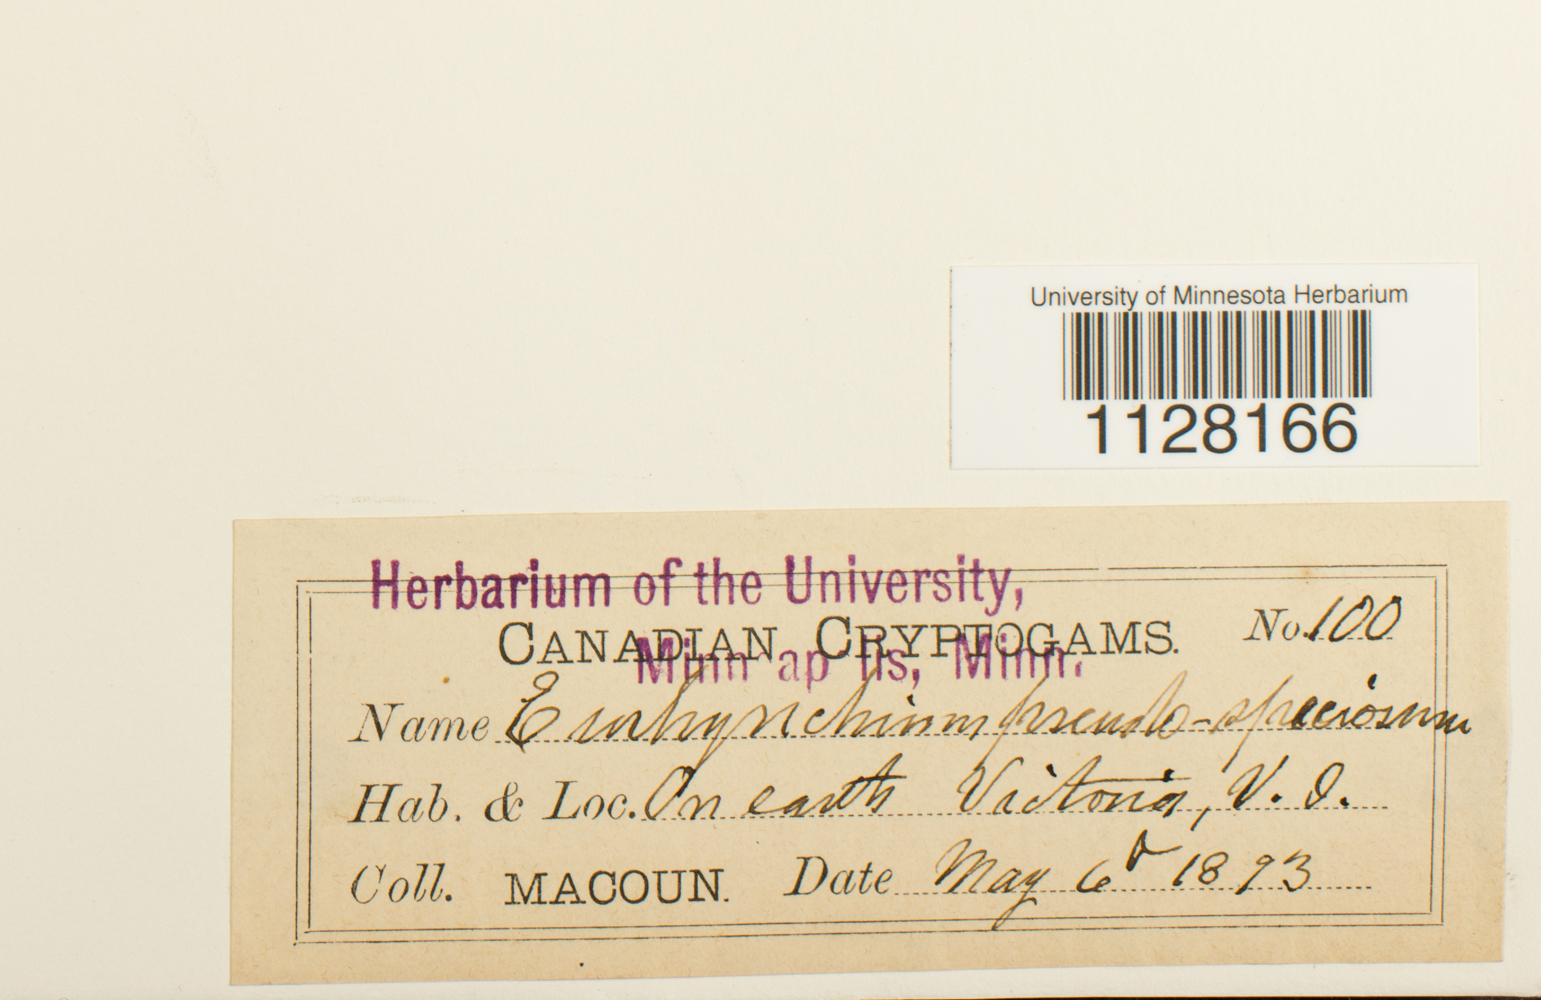 University of Minnesota Herbarium
1128166
Herbarium of the University,
CANADIAN CRYPTOGAMS. No. 100
Minn ap lis, Minn.
Name Eurhynchium pseudo-speciosum
Hab. & Loc. On earth Victoria, V. I.
Coll. MACOUN. Date May 6th 1893